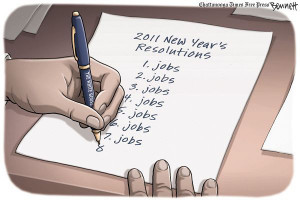 Chattanooga Times Free Press Bennett
2011 New Year's
Resolutions
1. jobs
2. jobs
3. jobs
4. jobs
5. jobs
6. jobs
7. jobs
8